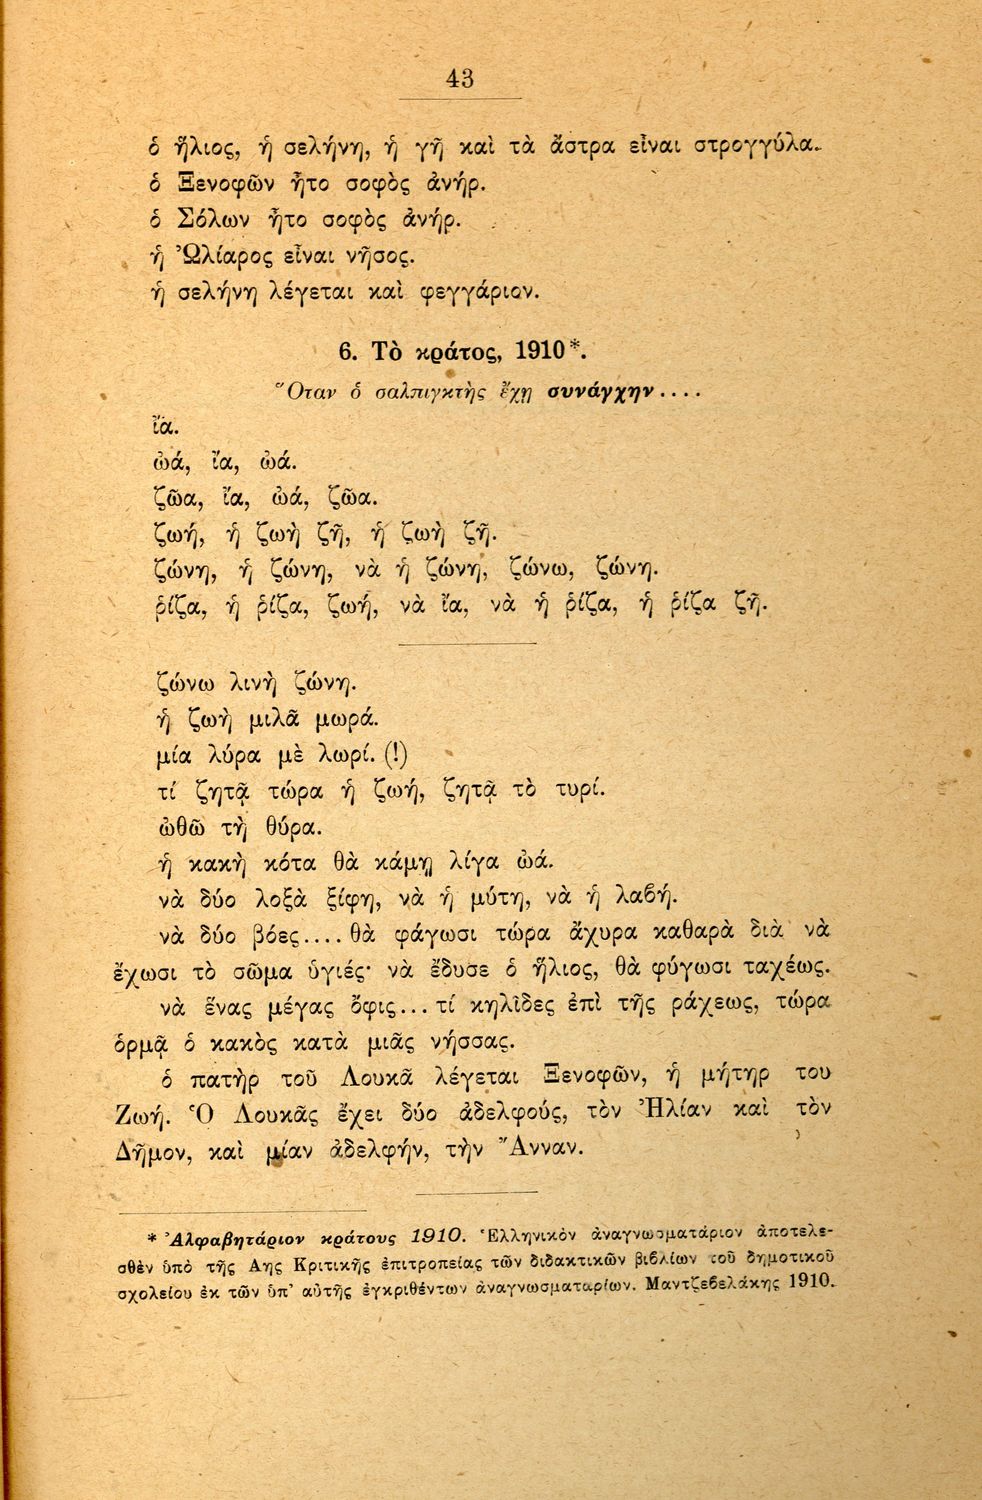 43
ὁ ἥλιος, ἡ σελήνη, ἡ γῆ καὶ τὰ ἄστρα εἶναι στρογγύλα.
ὁ Ξενοφῶν ἦτο σοφὸς ἀνήρ.
ὁ Σόλων ἦτο σοφὸς ἀνήρ.
ἡ Ὠλίαρος εἶναι νῆσος.
ἡ σελήνη λέγεται καὶ φεγγάριον.
6. Τὸ κράτος, 1910*.
Ὅταν ὁ σαλπιγκτὴς ἔχῃ συνάγχην....
ἴα.
ὠά, ἴα, ὠά.
ζῶα, ἴα, ὠά, ζῶα.
ζωή, ἡ ζωὴ ζῇ, ἡ ζωὴ ζῇ.
ζώνη, ἡ ζώνη, νὰ ἡ ζώνη, ζώνω, ζώνη.
ῥίζα, ἡ ῥίζα, ζωή, νὰ ἴα, νὰ ἡ ῥίζα, ἡ ῥίζα ζῇ.
ζώνω λινὴ ζώνη.
ἡ ζωὴ μιλᾶ μωρά.
μία λύρα μὲ λωρί. (!)
τί ζητᾷ τώρα ἡ ζωή, ζητᾷ τὸ τυρί.
ὠθῶ τὴ θύρα.
ἡ κακὴ κότα θὰ κάμῃ λίγα ὠά.
νὰ δύο λοξὰ ξίφη, νὰ ἡ μύτη, νὰ ἡ λαϐή.
νὰ δύο βόες.... θὰ φάγωσι τώρα ἄχυρα καθαρὰ διὰ νὰ
ἔχωσι τὸ σῶμα ὑγιές· νὰ ἔδυσε ὁ ἥλιος, θὰ φύγωσι ταχέως.
νὰ ἕνας μέγας ὄφις... τί κηλῖδες ἐπὶ τῆς ράχεως, τώρα
ὁρμᾷ ὁ κακὸς κατὰ μιᾶς νήσσας.
ὁ πατὴρ τοῦ Λουκᾶ λέγεται Ξενοφῶν, ἡ μήτηρ του
Ζωή. Ὁ Λουκᾶς ἔχει δύο ἀδελφούς, τὸν Ἠλίαν καὶ τὸν
Δῆμον, καὶ μίαν ἀδελφήν, τὴν Ἄνναν.
* Ἀλφαβητάριον κράτους 1910. Ἑλληνικὸν ἀναγνωσματάριον ἀποτελε-
σθὲν ὑπὸ τῆς Αης Κριτικῆς ἐπιτροπείας τῶν διδακτικῶν βιϐλίων τοῦ δημοτικοῦ
σχολείου ἐκ τῶν ὑπ' αὐτῆς ἐγκριθέντων ἀναγνωσματαρίων. Μαντζεϐελάκης 1910.